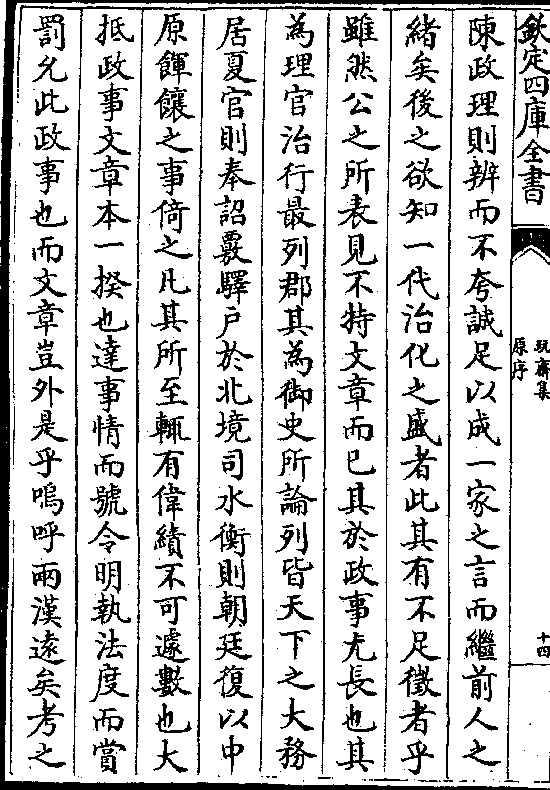 欽定四庫全書
玩齋集
原序
十四
陳政理則辨而不夸誠足以成一家之言而繼前人之
緒矣後之欲知一代治化之盛者此其有不足徵者乎
雖然公之所表見不特文章而已其於政事尤長也其
為理官治行最列郡其為御史所論列皆天下之大務
居夏官則奉詔覈驛戸於北境司水衡則朝廷復以中
原餫饟之事倚之凡其所至輒有偉績不可遽數也大
抵政事文章本一揆也達事情而號令明執法度而賞
罰允此政事也而文章豈外是乎嗚呼兩漢逺矣考之